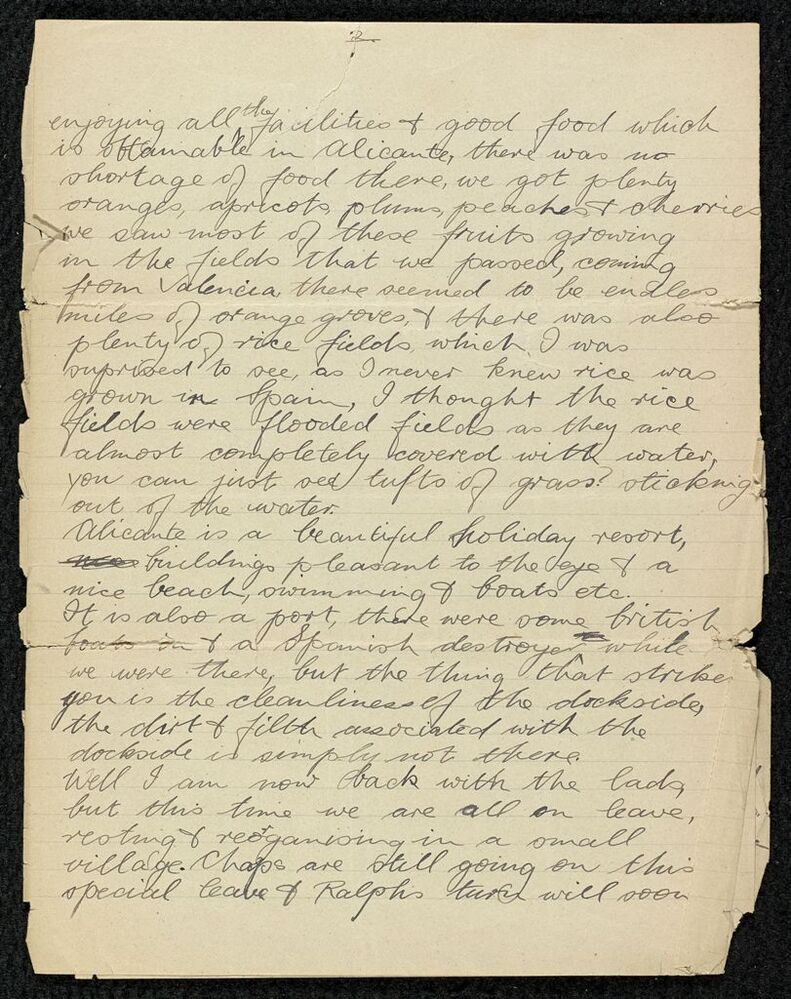 2
enjoying all the facilities & good food which
is obtainable in Alicante, there was no
shortage of food there, we got plenty
oranges, apricots, plums, peaches & cherries
we saw most of these fruits growing
in the fields that we passed, coming
from Valencia, there seemed to be endless
miles of orange groves, & there was also
plenty of rice fields, which I was
suprised to see, as I never knew rice was
grown in Spain, I thought the rice
fields were flooded fields as they are
almost completely covered with water,
you can just see tufts of grass? sticking
out of the water.
Alicante is a beautiful holiday resort,
nice buildings pleasant to the eye & a
nice beach, swimming & boats etc.
It is also a port, there were some British
boats in & a Spanish destroyer while
we were there, but the thing that strikes
you is the cleanliness of the dockside,
the dirt & filth associated with the
dockside is simply not there.
Well I am now back with the lads,
but this time we are all on leave,
resting & reorganising in a small
village. Chaps are still going on this
special leave & Ralphs turn will soon